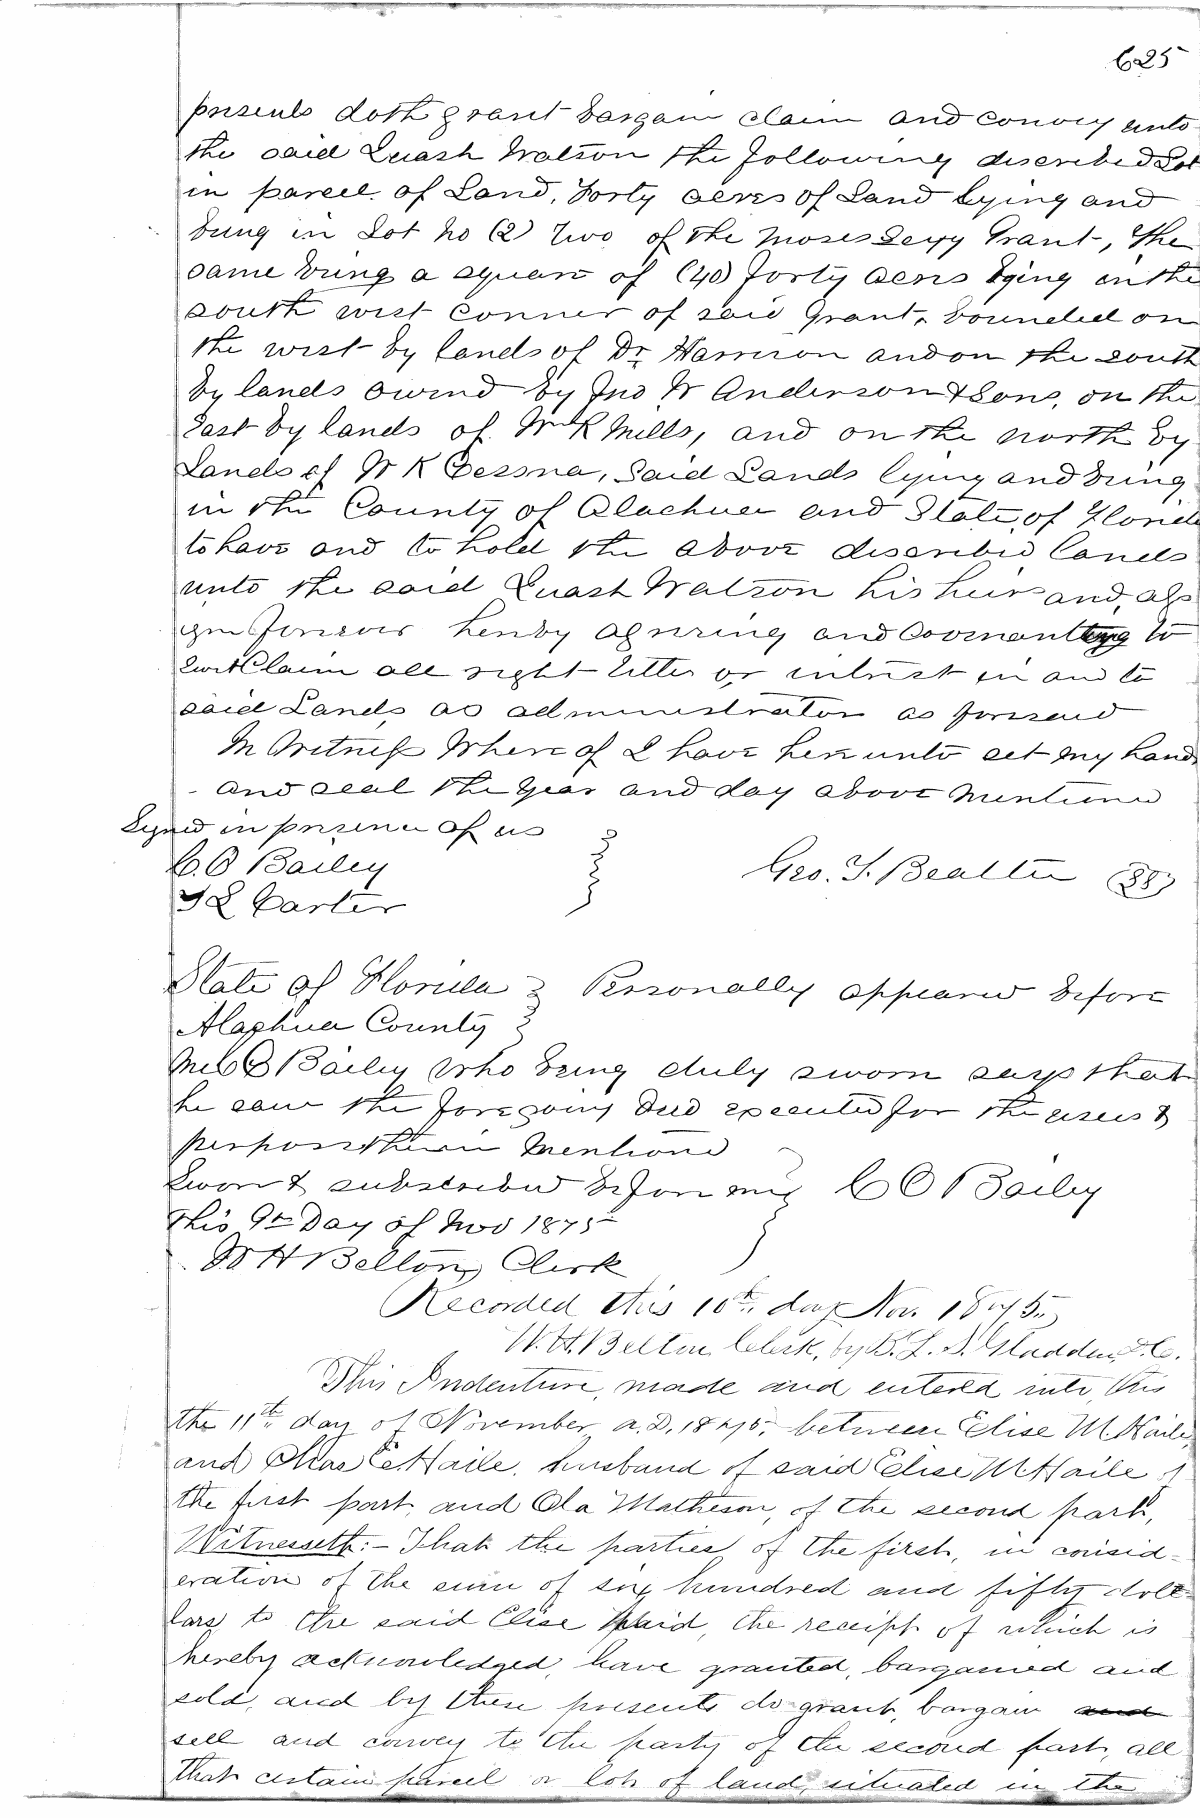 625
presents doth grant bargain claim and convey unto
the said Quash Watson the following discribed Lot
in parcel of Land, Forty acres of Land lying and
being in Lot No (2) Two of the Moses Levy Grant, the
same being a square of (40) forty acres lying in the
south west conner of said Grant, bounded on
the west by lands of Dr Harrison and on the south
by lands owend by Jno W Anderson & Sons, on the
East by lands of Wm R Mills, and on the north by
Lands of W K Cessna, Said Lands lying and being
in the County of Alachua and State of Florida
to have and to hold the above discribed lands
unto the said Quash Watson his heirs and ass
igns forever hereby agreeing and covenanting to
Quit Claim all right title or intrest in and to
said Lands as administrator as foresaid
In Witness Where of I have here unto set my hand
and seal the year and day above mentioned
Signed in presence of us
C. O Bailey
T L Carter
Geo. T. Beall
State of Florida Personally appeared before
Alachua County
me C O Bailey who being duly sworn says that
he saw the foregoing Deed executed for the uses &
perposes therein mentioned
Sworn & subscribed before me C O Bailey
this 9th Day of Nov 1875
W H Belton, Clerk
Recorded this 10th day Nov. 1875.
W. H. Belton Clerk, by B. L. S. Gladden, D.C.
This Indenture, made and entered into this
the 11th day of November a.D. 1875, between Elise M. Haile,
and Chas E Haile, husband of said Elise M Haile of
the first part, and Ola Matheson, of the second part,
Witnesseth:- That the parties of the first, in consid-
eration of the sum of six hundred and fifty dol-
lars, to the said Elise paid, the receipt of which is
hereby acknowledged, have granted, bargained and
sold, and by these presents do grant, bargain and
sell and convey to the party of the second part, all
that certain parcel or lot of land, situated in the